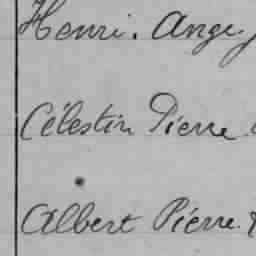 Henri. Ange
Célestin Pierre
Albert Pierre.